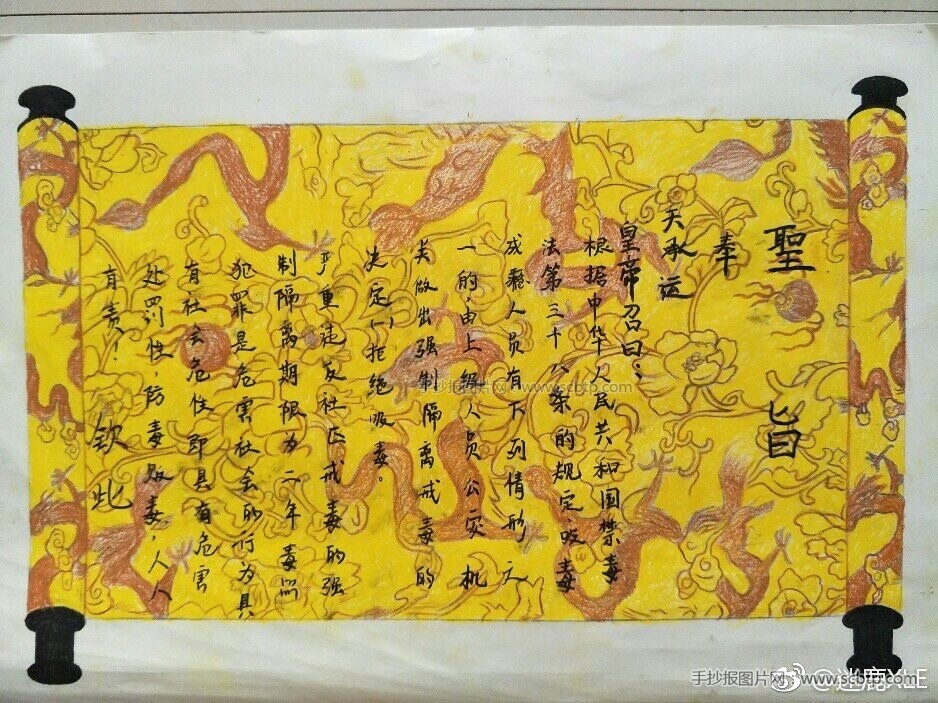 聖旨
奉
天承运
皇帝召曰：
根据中华人民共和国禁毒
法第三十八条的规定吸毒
成瘾人员有下列情形之
一的，由上级人员公安机
关做出强制隔离戒毒的
决定(一)拒绝吸毒。
严重违反社区戒毒的强
制隔离期限为二年毒品
犯罪是危害社会的行为具
有社会危性即具有危害
处罚性，防毒贩毒，人人
有责！
钦此
手抄报图片网 www.scbtp.com
手抄报图片网：www.scbtp.com
@迷鹿XLE